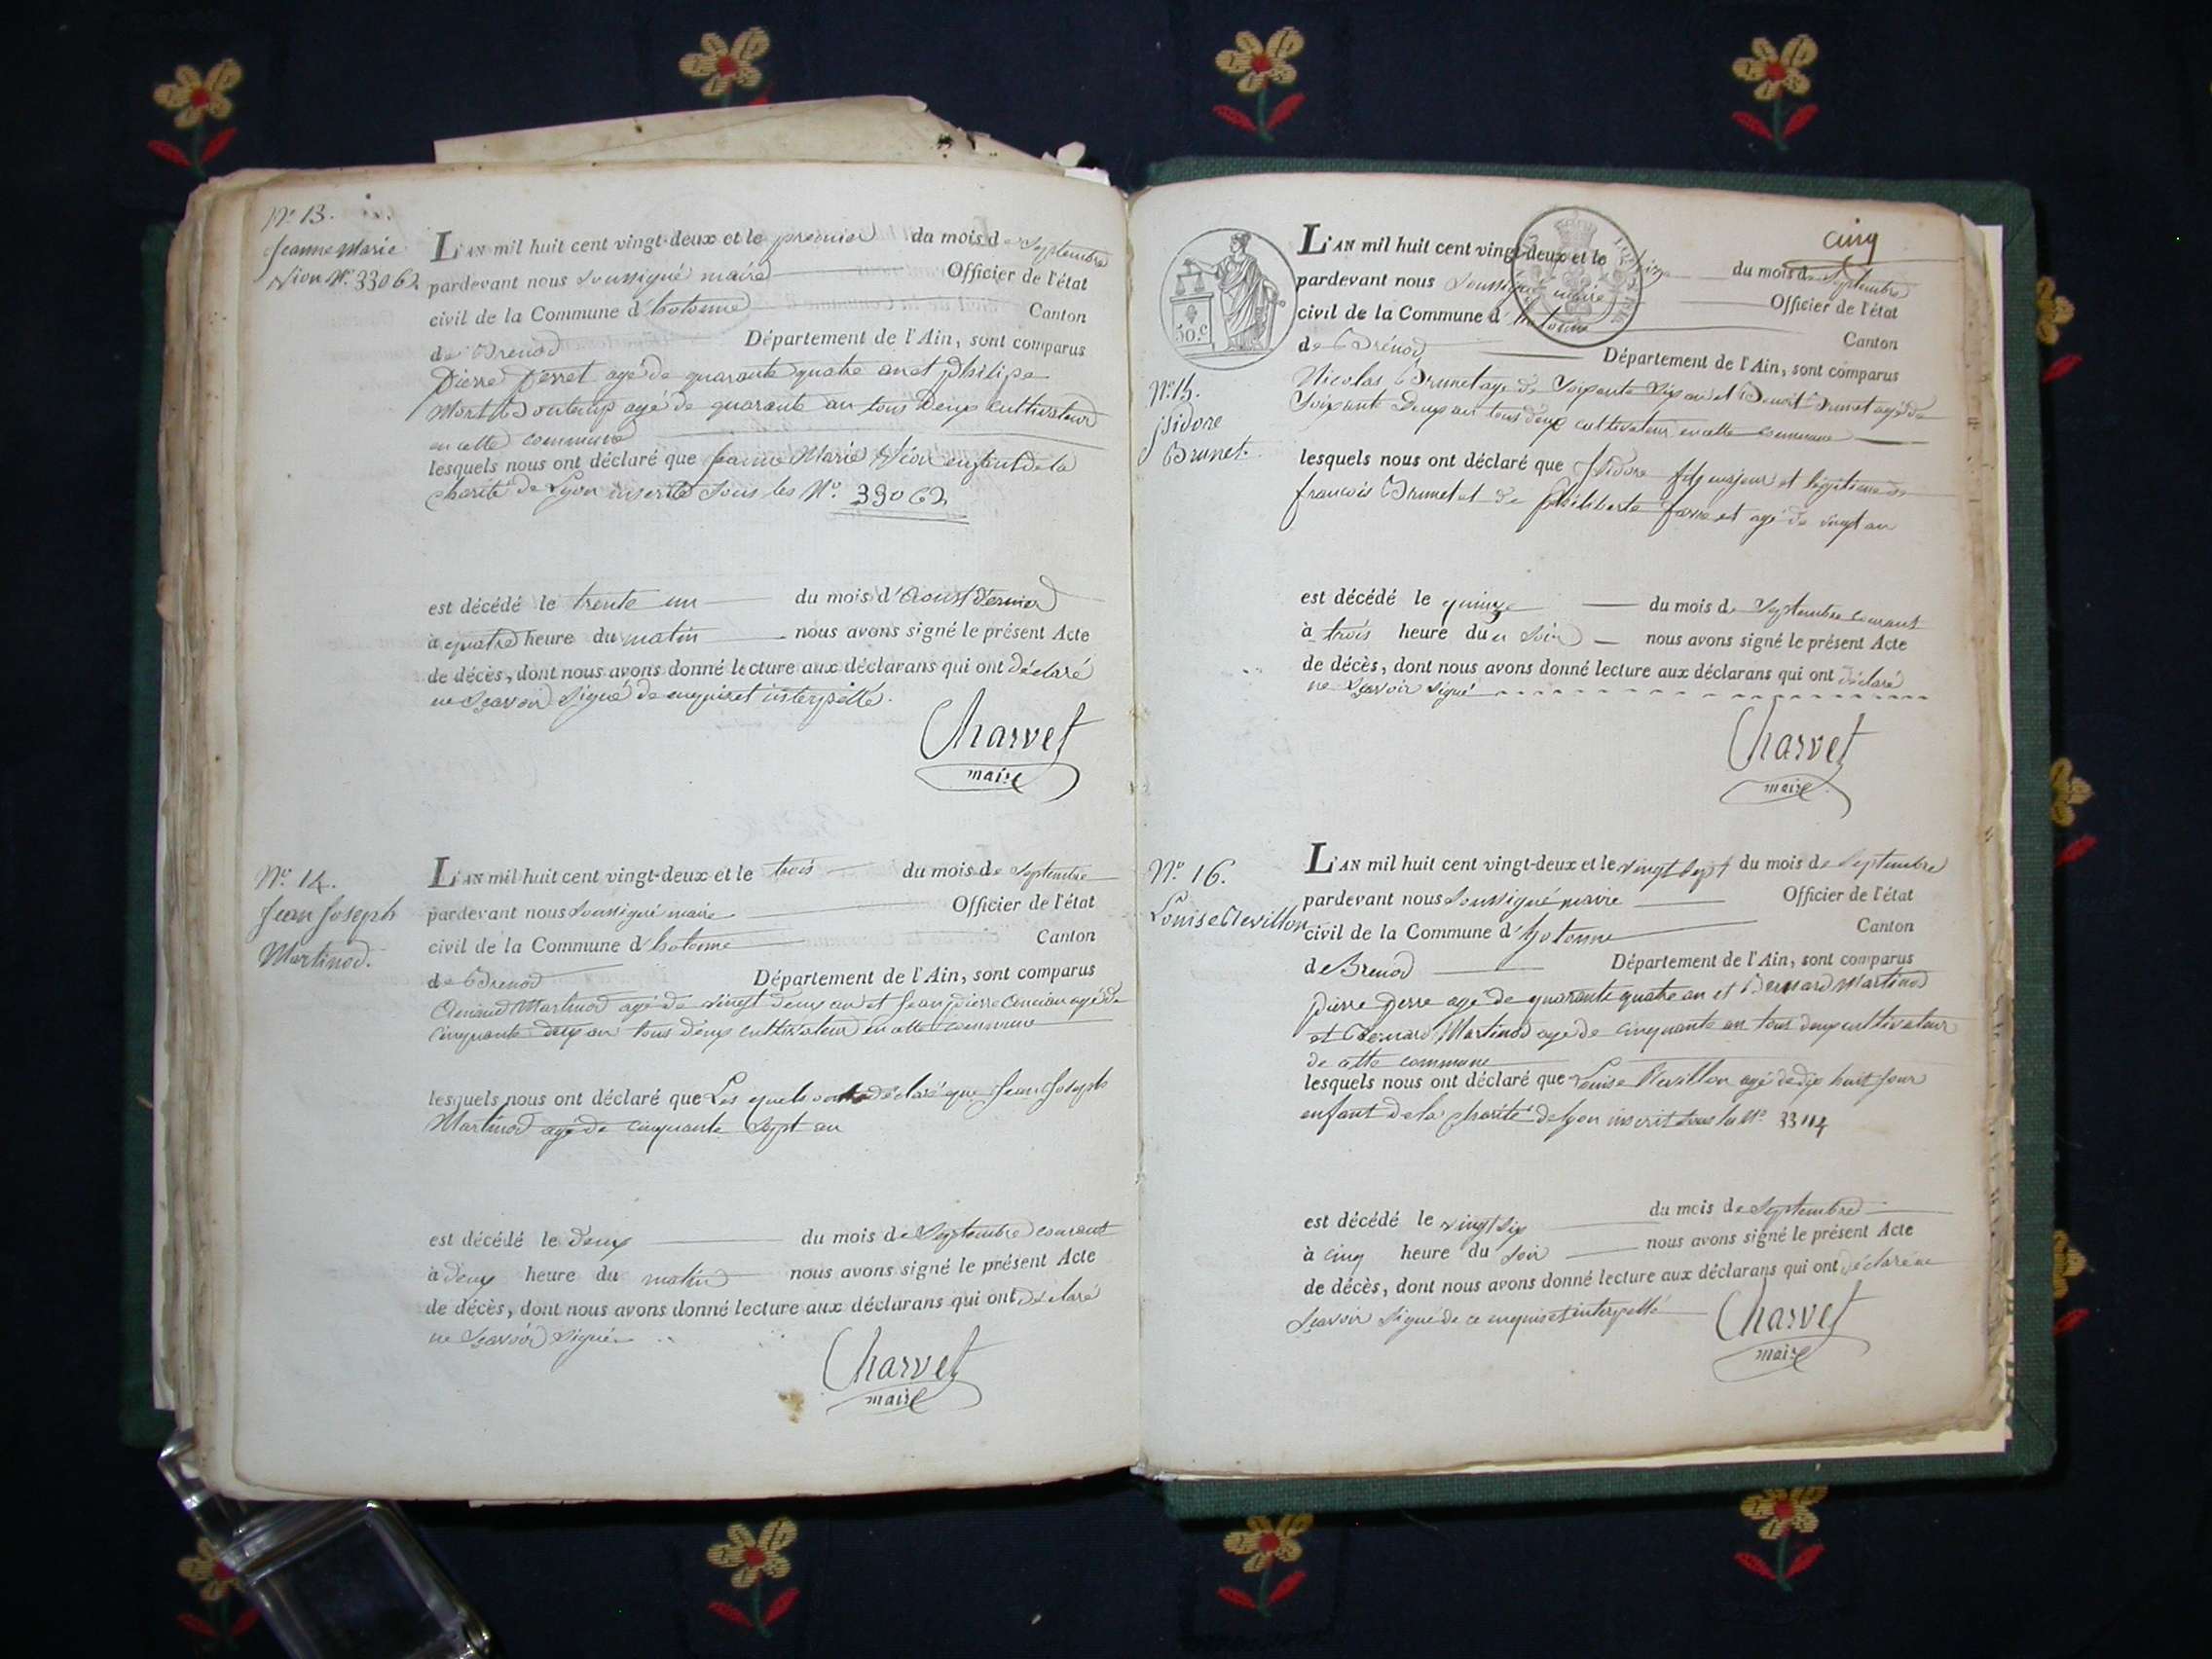 N.º 13.
Jeanne Marie
N.º 33062
L'AN mil huit cent vingt-deux et le premier du mois de Septembre
pardevant nous Soussigné maire Officier de l'état
civil de la Commune d'hotonne Canton
de Brenod Département de l'Ain, sont comparus
Pierre Perret agé de quarante quatre an et Philipe
agé de quarante an tous deux cultivateur
en cette commune
lesquels nous ont déclaré que Jeanne Marie enfant de la
charité de Lyon inscrite sous les N.º 33062
est décédé le trente un du mois d'Aoust dernier
à quatre heure du matin nous avons signé le présent Acte
de décès, dont nous avons donné lecture aux déclarans qui ont déclaré
ne Sçavoir Signé de enquis et interpellé.
Charvet
maire
N.º 14.
Jean Joseph
Martinod.
L'AN mil huit cent vingt-deux et le trois du mois de Septembre
pardevant nous Soussigné maire Officier de l'état
civil de la Commune d'hotonne Canton
de Brenod Département de l'Ain, sont comparus
Martinod agé de vingt deux an et Jean Pierre agé de
Cinquante deux an tous deux cultivateur en cette commune
lesquels nous ont déclaré que Les quels déclaré que Jean Joseph
Martinod agé de cinquante Sept an
est décédé le deux du mois de Septembre courant
à deux heure du matin nous avons signé le présent Acte
de décès, dont nous avons donné lecture aux déclarans qui ont déclaré
ne Sçavoir Signé
Charvet
maire
cinq
50.c
L'AN mil huit cent vingt-deux et le du mois de Septembre
pardevant nous Soussigné maire Officier de l'état
civil de la Commune d'hotonne Canton
de Brénod Département de l'Ain, sont comparus
N.º 15.
jsidore
Brunet.
Nicolas Brunet agé de Soixante Six an et Benoit Brunet agé de
Soixante Deux an tous deux cultivateur en cette commune
lesquels nous ont déclaré que Jsidore fils majeur et légitime de
francois Brunet et de philiberte agé de vingt an
est décédé le quinze du mois de Septembre courant
à trois heure du soir nous avons signé le présent Acte
de décès, dont nous avons donné lecture aux déclarans qui ont déclaré
ne Sçavoir Signé
Charvet
maire
N.º 16.
Louise
L'AN mil huit cent vingt-deux et le vingt Sept du mois de Septembre
pardevant nous Soussigné maire Officier de l'état
civil de la Commune d'hotonne Canton
de Brenod Département de l'Ain, sont comparus
pierre perre agé de quarante quatre an et Bernard Martinod
et Bernard Martinod agé de cinquante an tous deux cultivateur
de cette commune
lesquels nous ont déclaré que Louise agé de dix huit jour
enfant de la charité de lyon inscrit sous le N.º 33114
est décédé le vingt Six du mois de Septembre
à cinq heure du Soir nous avons signé le présent Acte
de décès, dont nous avons donné lecture aux déclarans qui ont déclaré ne
Sçavoir Signé de ce enquis et interpellé
Charvet
maire